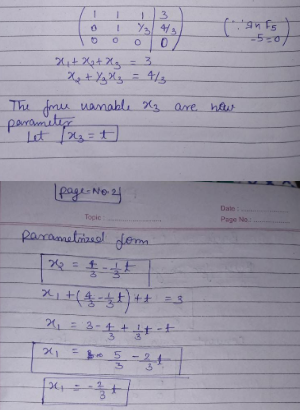 ( 1 1 1 | 3
0 1 1/3 | 4/3
0 0 0 | 0 )
(∵ in F5
-5=0)
x1+x2+x3 = 3
x2+1/3x3 = 4/3
The free variable x3 are now
parameter
Let x3 = t
page-No.2
Date :
Topic :
Page No.:
parametrized form
x2 = 4/3 - 1/3 t
x1 + (4/3 - 1/3 t) + t = 3
x1 = 3 - 4/3 + 1/3 t - t
x1 = 5/3 - 2/3 t
x1 = -2/3 t